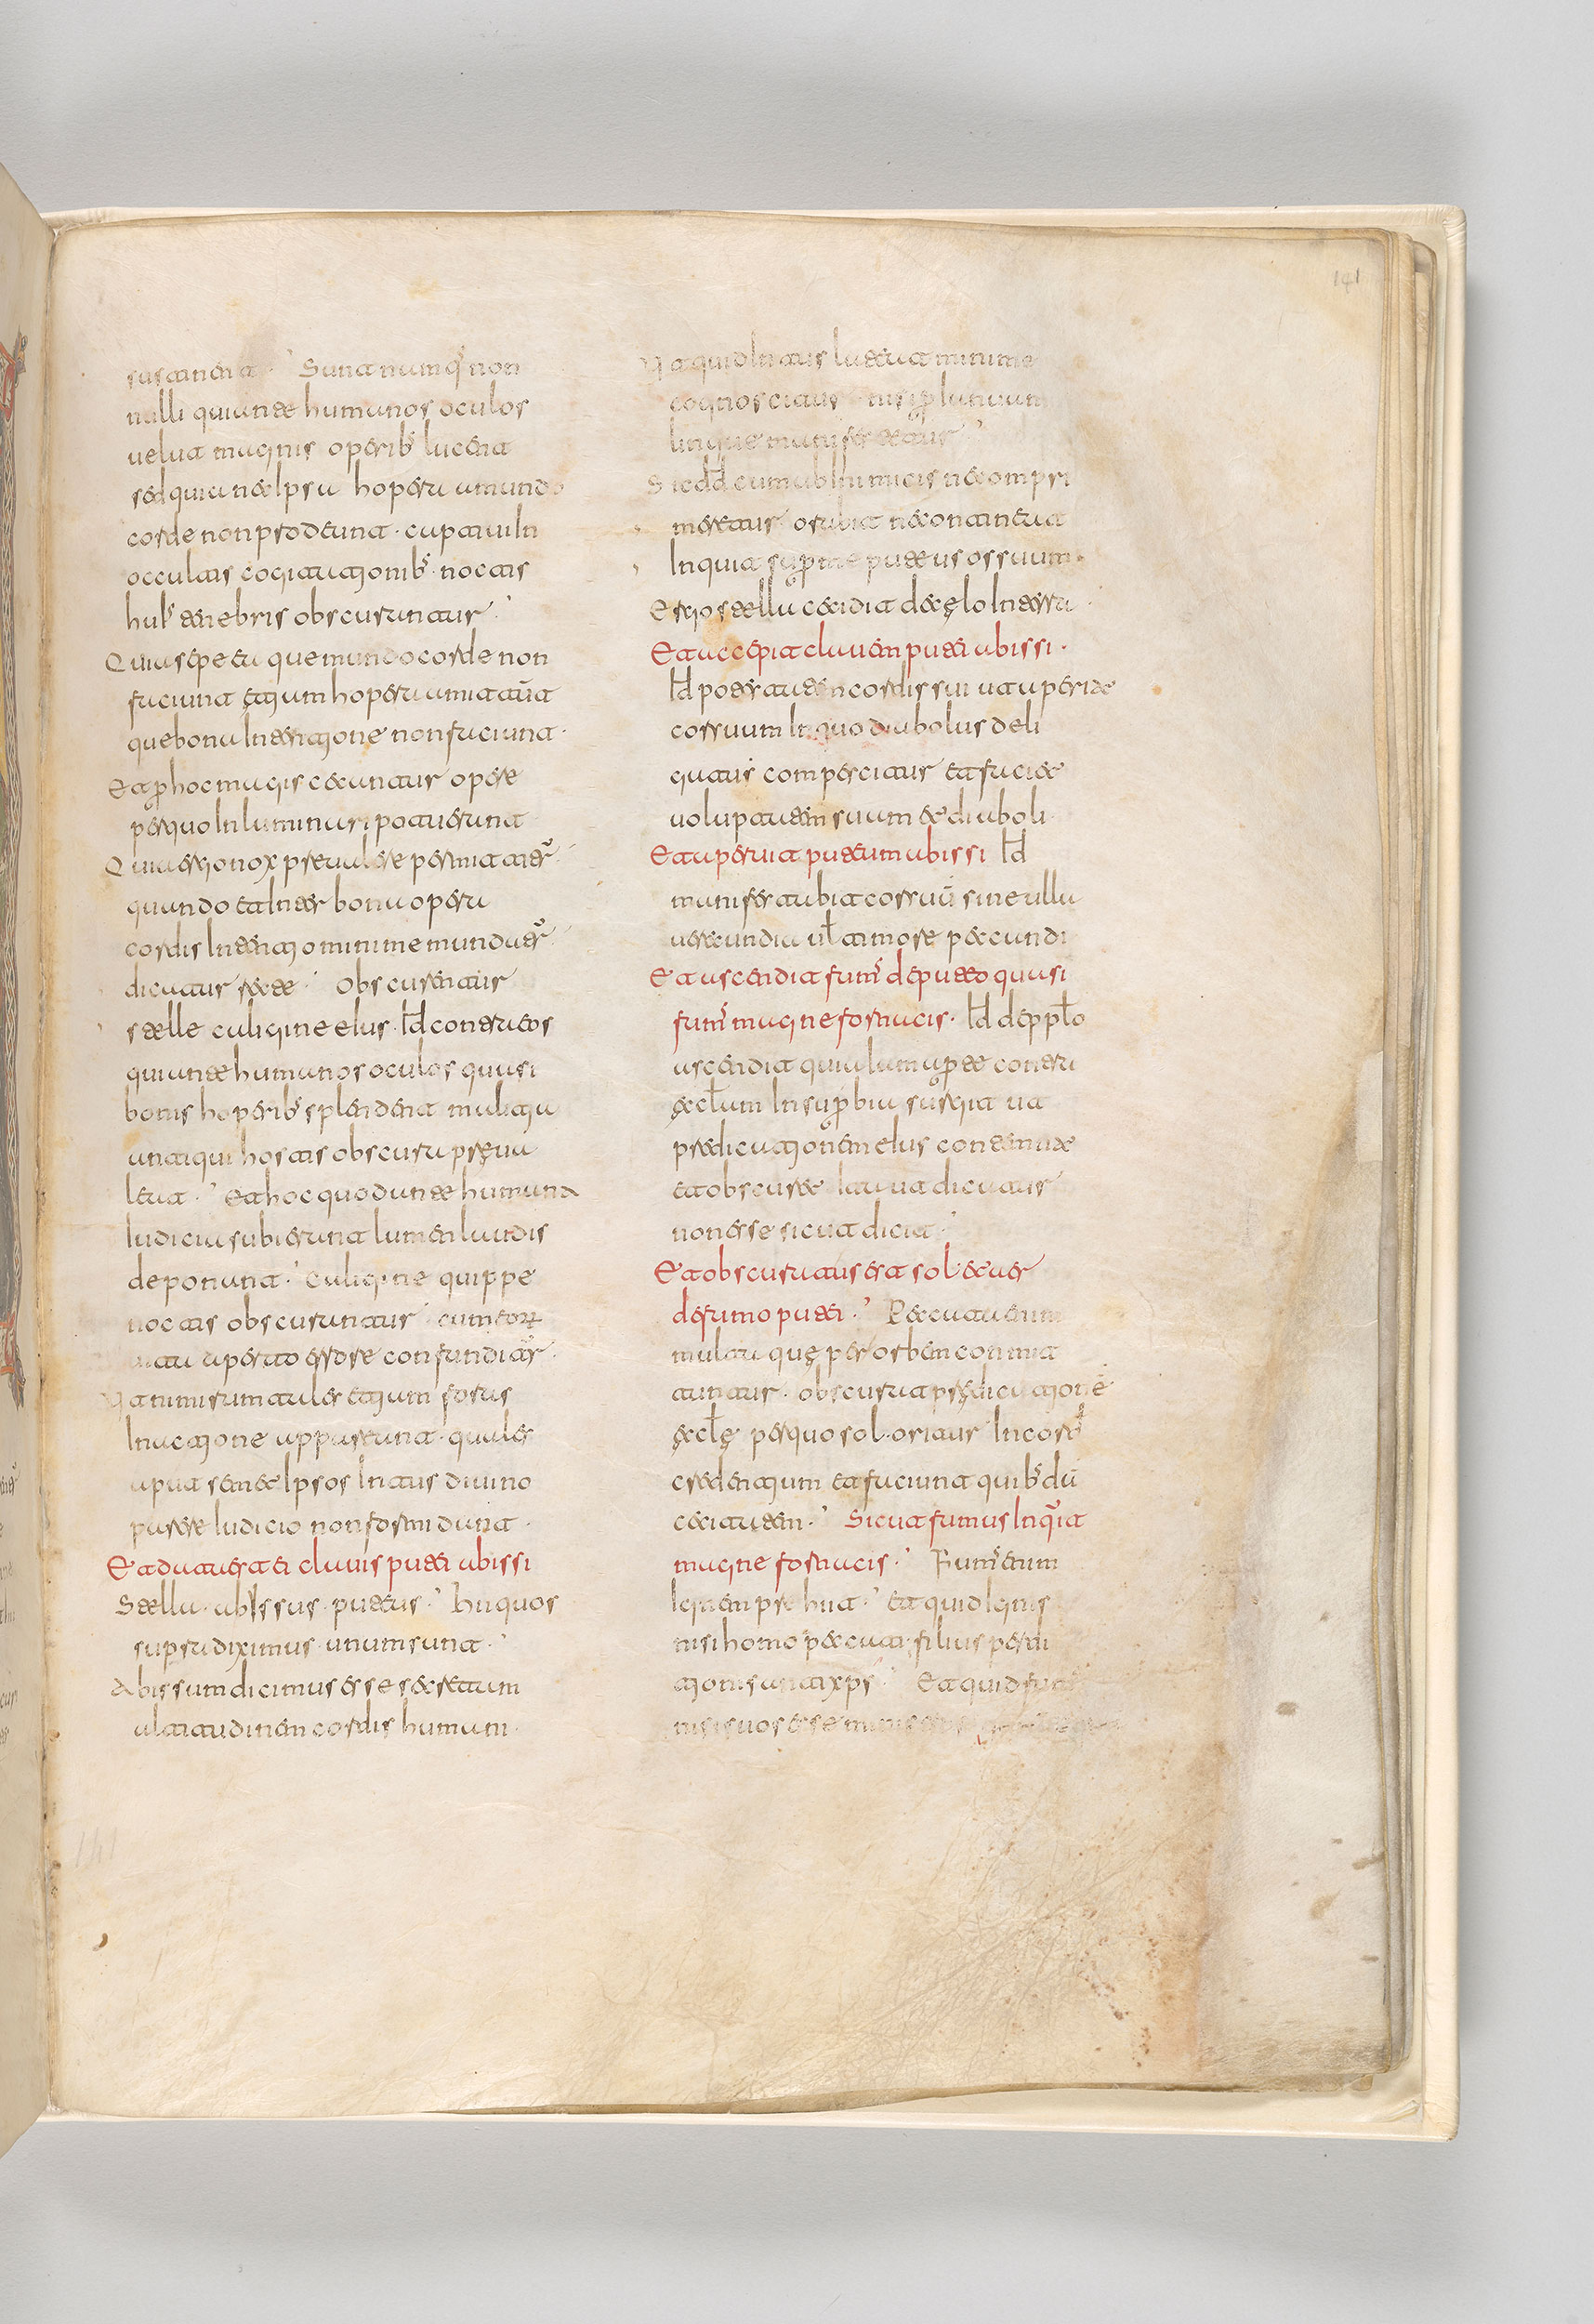 sustinent. Sunt numq non
nulli qui ante humanos oculos
uelut magnis operib lucent
sed quia nec Ipsa hopera a mundo
corde non prodeunt. captiui In
occultis cogitationib. noctis
hui' tenebris obscurantur
Quia sepe ea que mundo corde non
faciunt etium hopera amittunt
que bona Intentione non faciunt.
Et p hoc magis cecantur opere
per quo Inluminari potuerunt
Quia ergo nox preualere permittitur
quando et Inter bona opera
cordis Intentio minime mundatur
dicatur recte. Obscurentur
stelle caligine eIus. Id contra eos
qui ante humanos oculos quasi
bonis hoperib splendent malitia
antiqui hostis obscura preua
let. Et hoc quod ante humana
Iudicia subierunt lumen laudis
deponunt. caligine quippe
noctis obscurantur cum eorum
uita aperto errore confunditur.
Ut nimirum tales etium foris
In actione appareant. quales
aput semet Ipsos Intus diuino
patere Iudicio non formidant.
Et data est ei clauis putei abissi
Stella. abissus. puteus. hii quos
supra diximus unum sunt.
Abissum dicimus esse secretum
altitudinem cordis humani.
Ut quid Intus lateat minime
cognoscitur nisi p Ianuam
lingue manifestetur
Sic dd cum ab Inimicis ne compri
meretur orabit ne contineat
Inquit sup me puteus os suum.
Ergo stella cecidit de celo In terra
Et accepit clauem putei abissi.
Id potestatem cordis sui ut aperiret
cor suum In quo diabolus deli
gatus compercitur et faciet
uoluptatem suum et diaboli
Et aperuit puteum abissi Id
manifestabit cor suu sine ulla
uerecundia ul timore peccandi
Et ascendit fum de puteo quasi
fum magne fornacis. Id de pplo
ascendit qui alium apte contra
ecclam In supbia surgit ut
predicationem eIus contemnat
et obscuret Ita ut a dicatur
non esse sicut a dicit.
Et obscuratus est sol et aer
de fumo putei. Peccata enim
multa que per orbem commit
tuntur. obscurat predicatione
eccle per quo sol oritur In cord
credentium et faciunt quib du
cecitatem. Sicut a fumus Inquit
magne fornacis. Fum enim
Ignem prehiit. Et quid Ignis
nisi homo peccati filius perdi
tionis antixps. Et quid
nisi suos esse
141